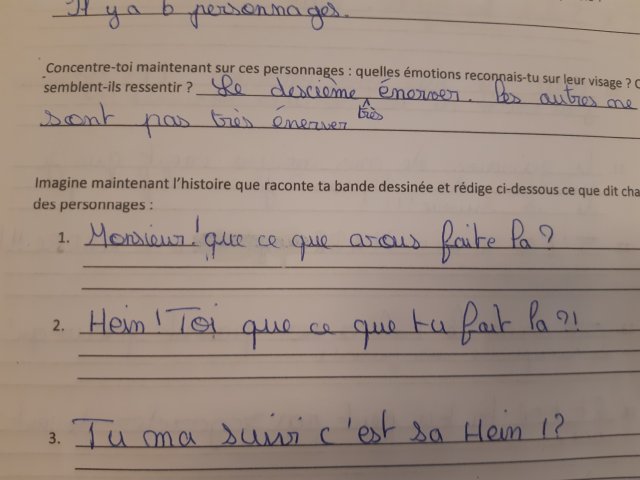 Il y a 6 personnages.
Concentre-toi maintenant sur ces personnages : quelles émotions reconnais-tu sur leur visage ?
semblent-ils ressentir ? Le descième énerver. Les autres ne
sont pas très énerver très
Imagine maintenant l'histoire que raconte ta bande dessinée et rédige ci-dessous ce que dit cha
des personnages :
1. Monsieur! que ce que avous faite la ?
2. Hein! Toi que ce que tu fait la ?!
3. Tu ma suivi c'est sa Hein !?